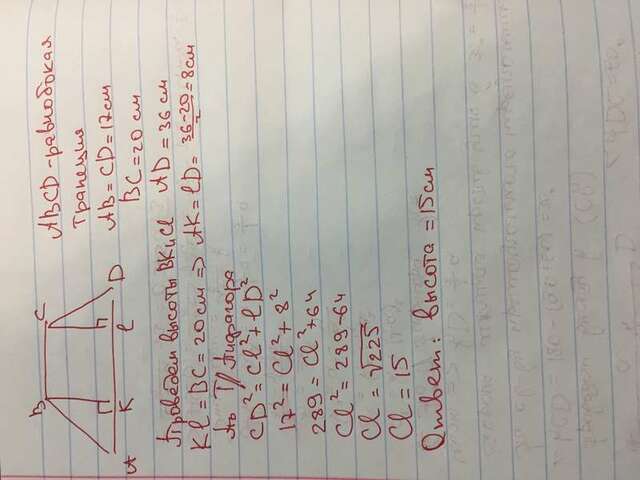 B C
A K l D
ABCD - равнобокая
трапеция
AB = CD = 17 см
BC = 20 см
AD = 36 см
Проведем высоты BK и Cl
Kl = BC = 20 см => AK = lD = (36-20)/2 = 8 см
По т/Пифагора
CD² = Cl² + lD²
17² = Cl² + 8²
289 = Cl² + 64
Cl² = 289 - 64
Cl = √225
Cl = 15
Ответ: высота = 15 см